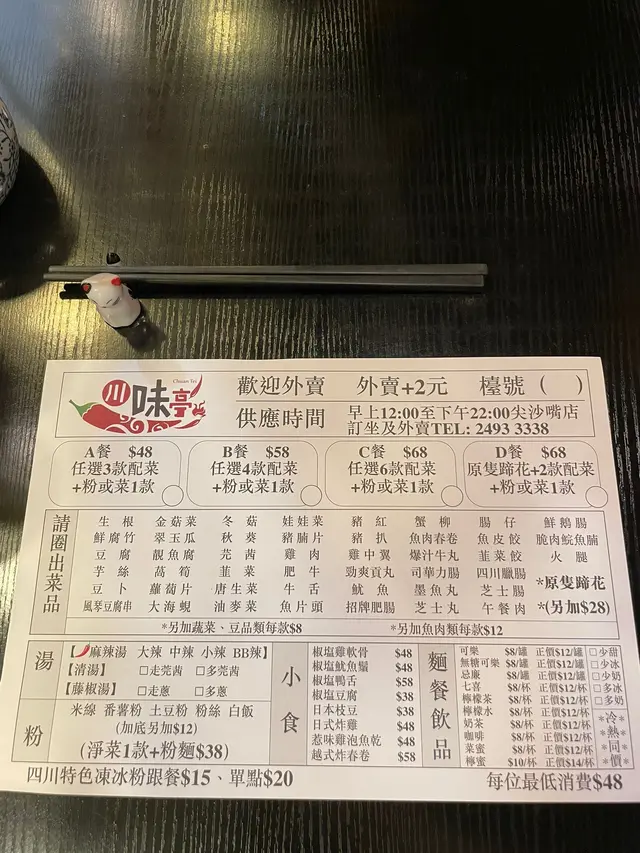 川味亭
Chuan Tei
歡迎外賣 外賣+2元 檯號( )
供應時間 早上12:00至下午22:00尖沙嘴店
訂坐及外賣TEL: 2493 3338
A餐 $48 任選3款配菜 +粉或菜1款
B餐 $58 任選4款配菜 +粉或菜1款
C餐 $68 任選6款配菜 +粉或菜1款
D餐 $68 原隻蹄花+2款配菜 +粉或菜1款
請圈出菜品
生根 金菇菜 冬菇 娃娃菜 豬紅 蟹柳 腸仔 鮮鵝腸
鮮腐竹 翠玉瓜 秋葵 豬腩片 豬扒 魚肉春卷 魚皮餃 脆肉鯇魚腩
豆腐 靚魚腐 芫茜 雞肉 雞中翼 爆汁牛丸 韮菜餃 火腿
芋絲 萵筍 韮菜 肥牛 勁爽貢丸 司華力腸 四川臘腸 *原隻蹄花
豆卜 蘿蔔片 唐生菜 牛舌 魷魚 墨魚丸 芝士腸 *(另加$28)
風琴豆腐串 大海蜆 油麥菜 魚片頭 招牌肥腸 芝士丸 午餐肉
*另加蔬菜、豆品類每款$8 *另加魚肉類每款$12
湯
【麻辣湯 大辣 中辣 小辣 BB辣】
【清湯】 □走芫茜 □多芫茜
【藤椒湯】 □走蔥 □多蔥
粉
米線 番薯粉 土豆粉 粉絲 白飯
(加底另加$12)
(淨菜1款+粉麵$38)
小食
椒塩雞軟骨 $48
椒塩魷魚鬚 $48
椒塩鴨舌 $58
椒塩豆腐 $38
日本枝豆 $38
日式炸雞 $48
惹味雞泡魚乾 $48
越式炸春卷 $58
麵餐飲品
可樂 $8/罐 正價$12/罐
無糖可樂 $8/罐 正價$12/罐
忌廉 $8/罐 正價$12/罐
七喜 $8/杯 正價$12/罐
檸檬茶 $8/杯 正價$12/杯
檸檬水 $8/杯 正價$12/杯
奶茶 $8/杯 正價$12/杯
咖啡 $8/杯 正價$12/杯
菜蜜 $8/杯 正價$12/杯
檸蜜 $10/杯 正價$14/杯
□少甜
□少冰
□少奶
□多冰
□多奶
*冷*
*熱*
*同*
*價*
四川特色凍冰粉跟餐$15、單點$20 每位最低消費$48